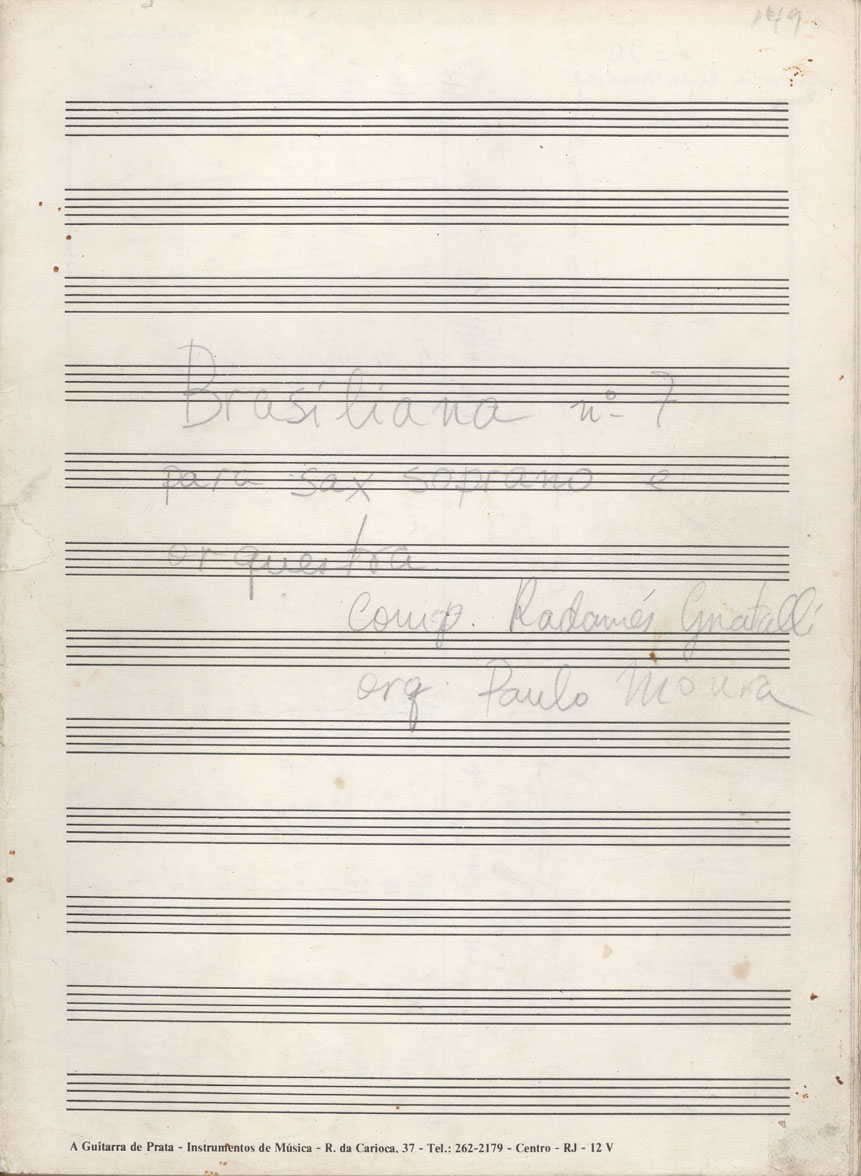 149
Brasiliana nº 7
para sax soprano e
orquestra
comp. Radamés Gnatalli
orq. Paulo Moura
A Guitarra de Prata - Instrumentos de Música - R. da Carioca, 37 - Tel.: 262-2179 - Centro - RJ - 12 V